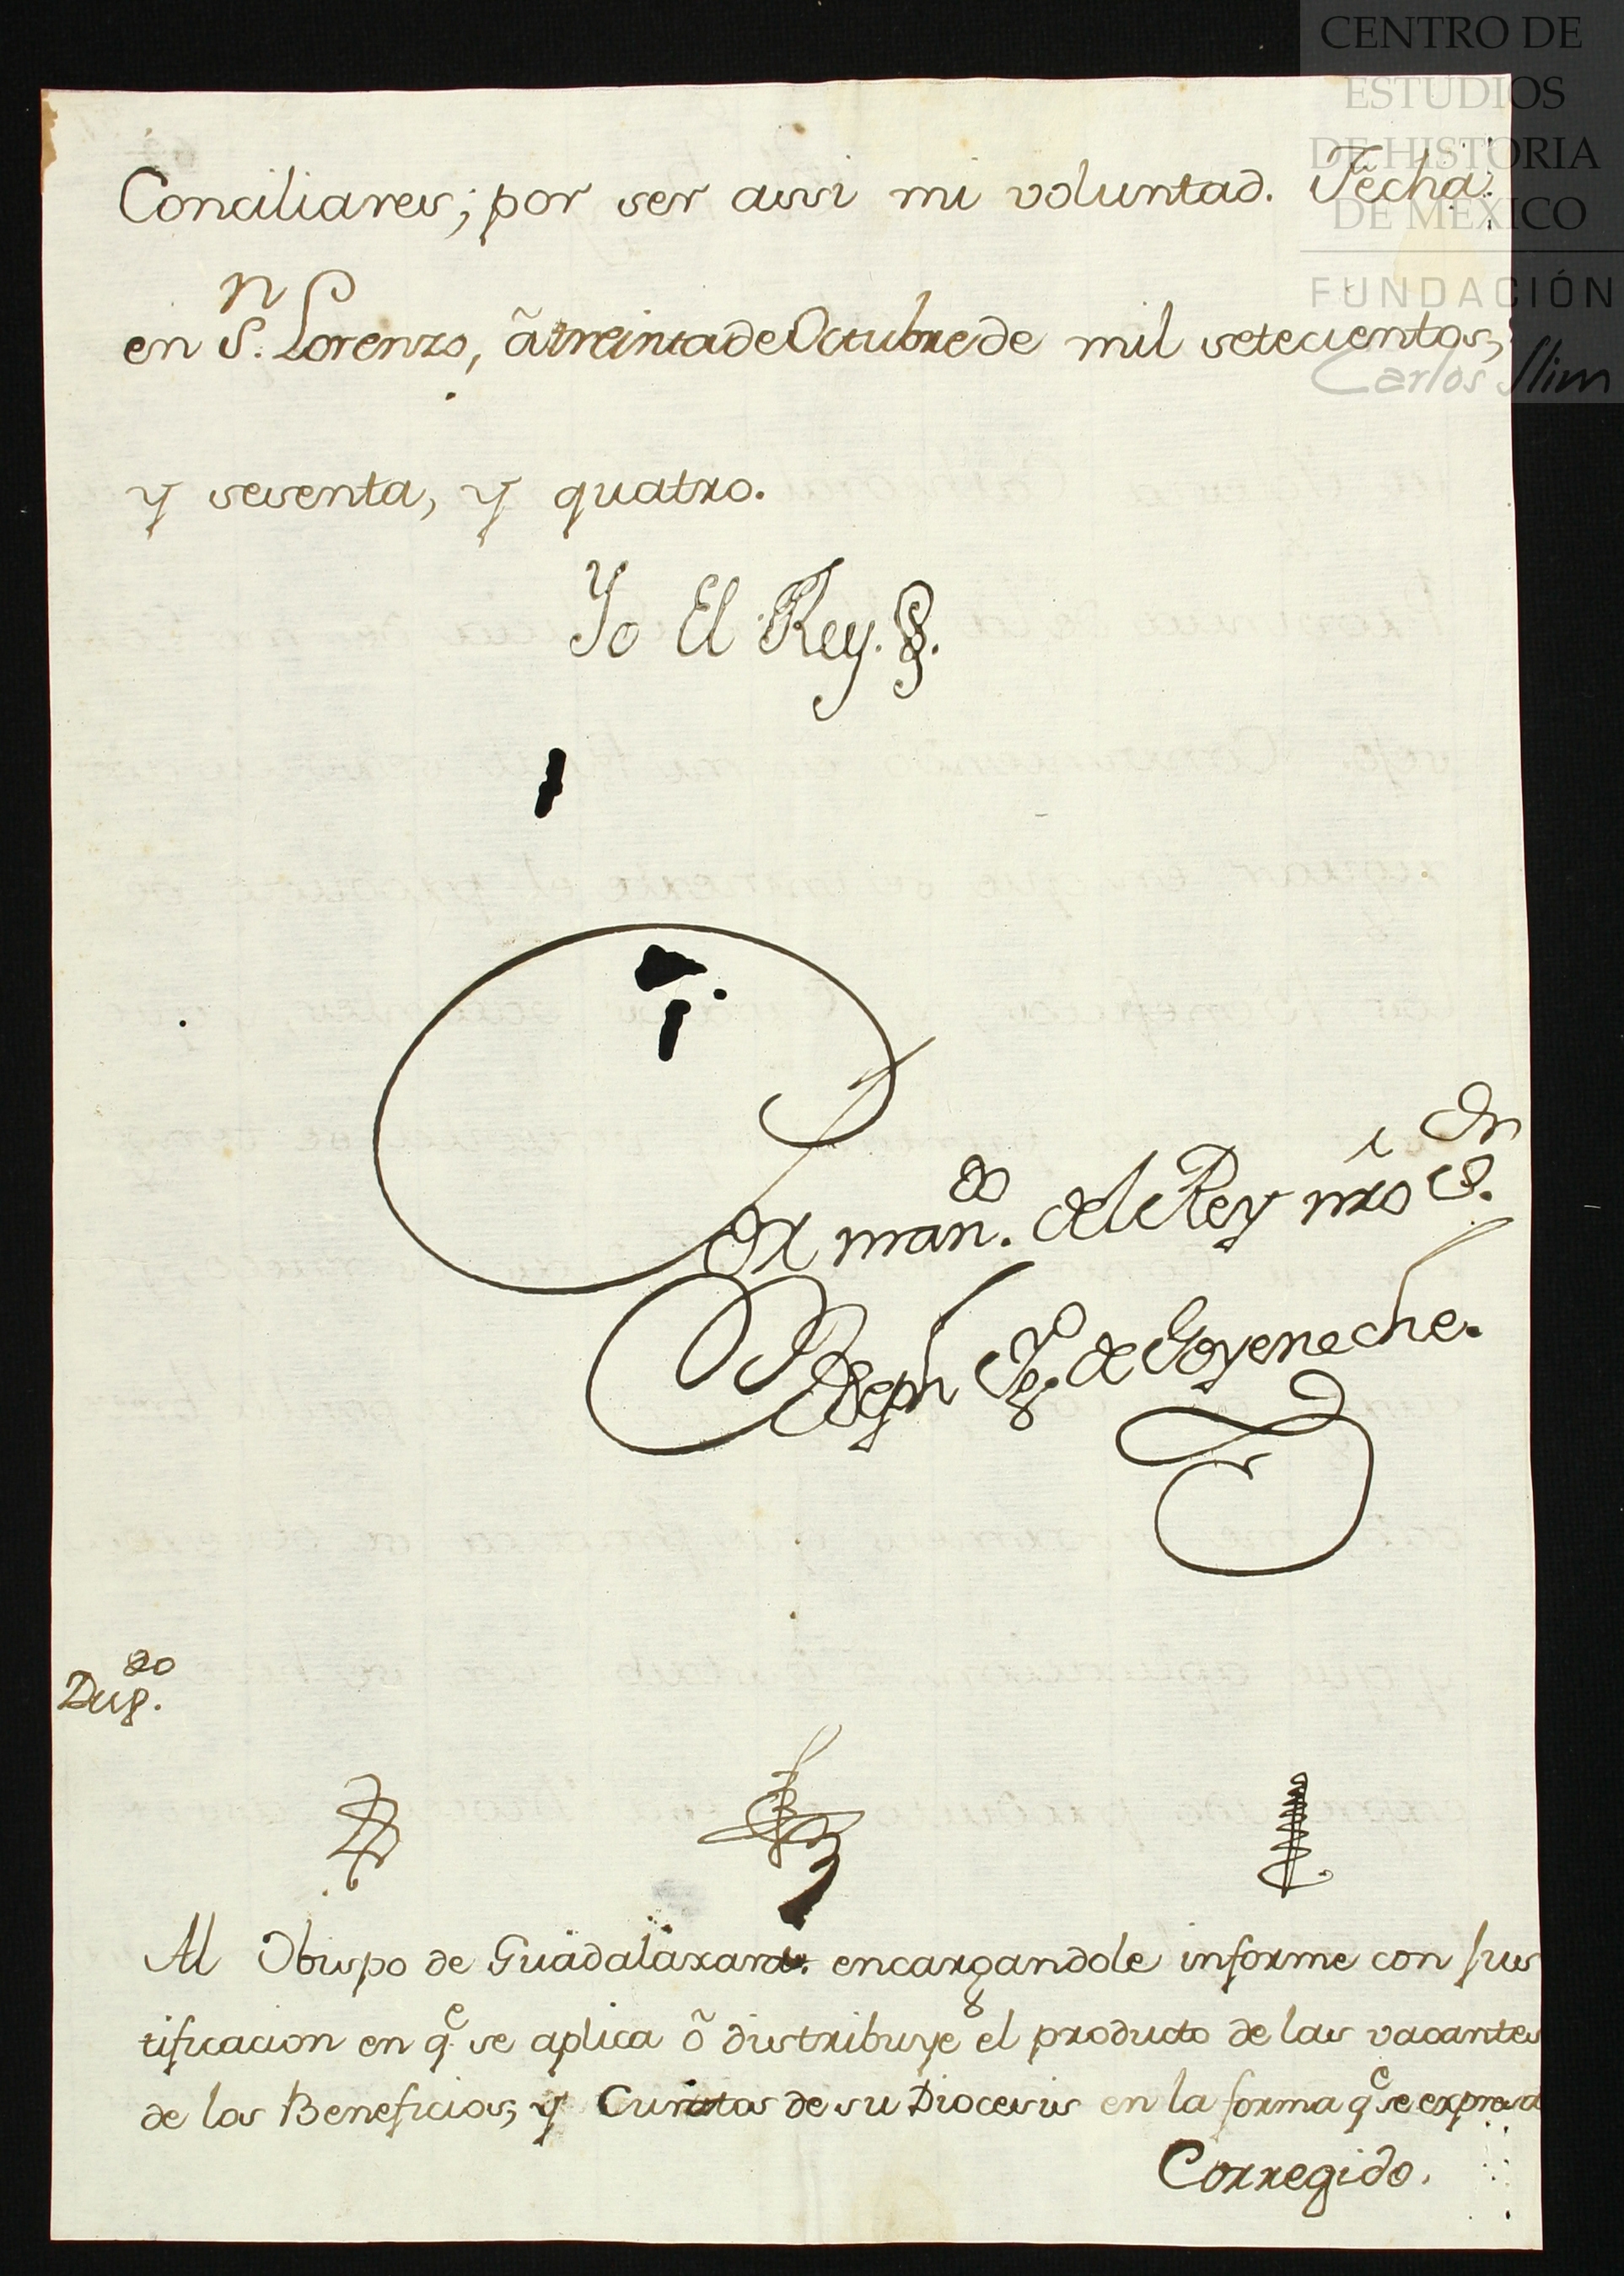 CENTRO DE
ESTUDIOS
DE HISTORIA
DE MÉXICO
FUNDACIÓN
Carlos Slim
Conciliares; por ser assi mi voluntad. Fecha
en Sn. Lorenzo, à treinta de Octubre de mil setecientos,
y sesenta, y quatro.
Yo El Rey.
Por mando. del Rey nro Sor.
Joseph Ign.o de Goyeneche.
Dup.do
Al Obispo de Guadalaxara. encargandole informe con jus
tificacion en qe. se aplica ò distribuye el producto de las vacantes
de los Beneficios, y Curatos de su Diocesis en la forma qe se expresa
Corregido.